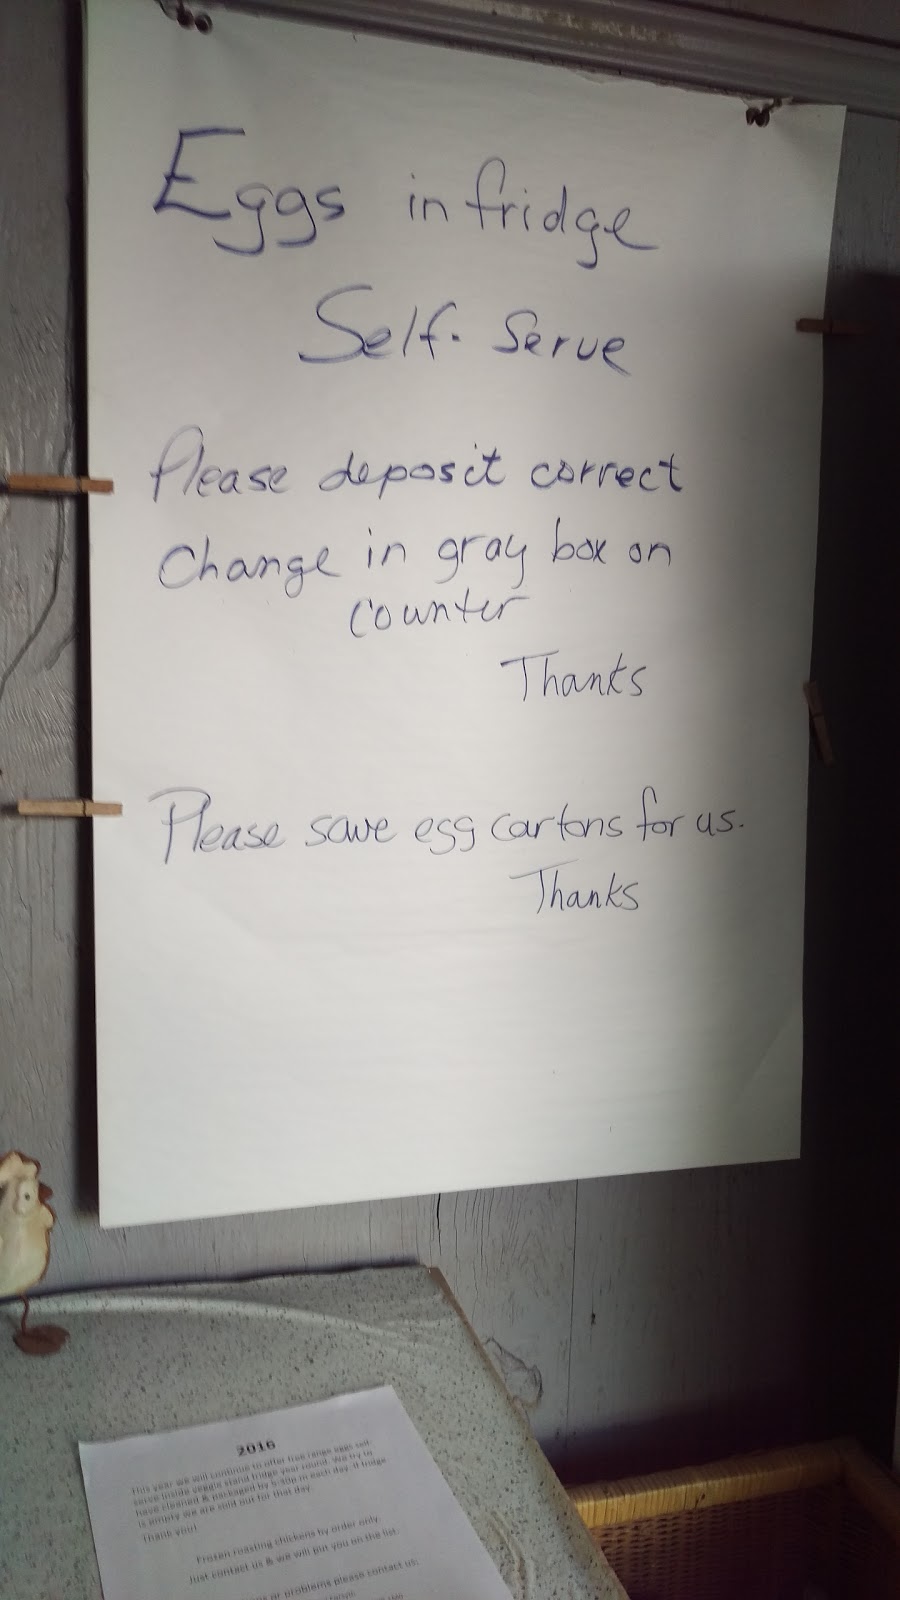 Eggs in fridge
Self. Serve
Please deposit correct
Change in gray box on
counter
Thanks
Please save egg cartons for us.
Thanks
2016
This year we will continue to offer free range eggs self-
serve inside veggie stand fridge year round. We try to
have cleaned & packaged by in each day. If fridge
is empty we are sold out for that day.
Thank you!
Frozen roasting chickens by order only.
Just contact us & we will put you on the list.
or problems please contact us: